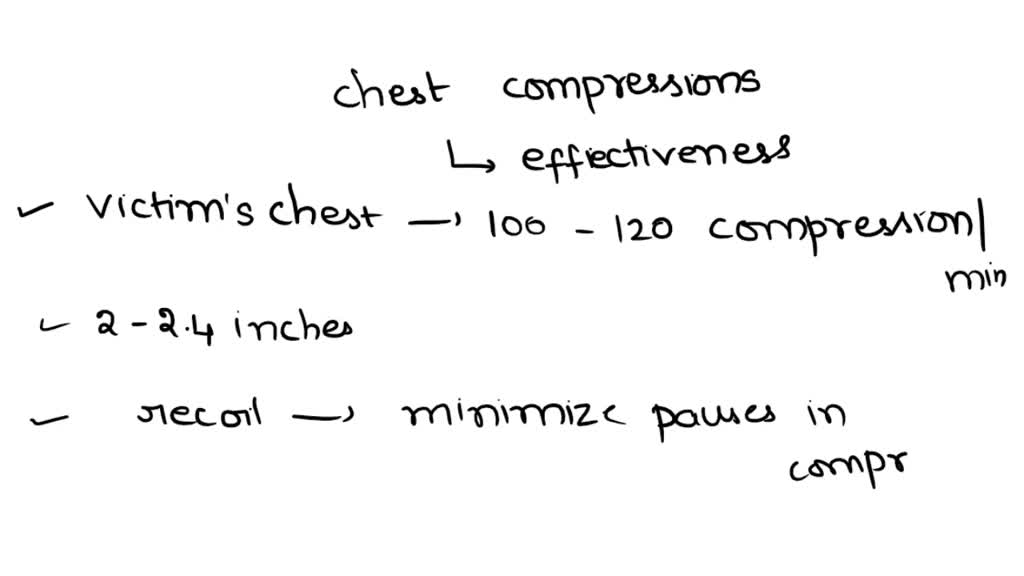 chest compressions
↳ effectiveness
✓ victim's chest → 100 - 120 compression/
min
✓ 2 - 2.4 inches
✓ recoil → minimize pauses in
compr